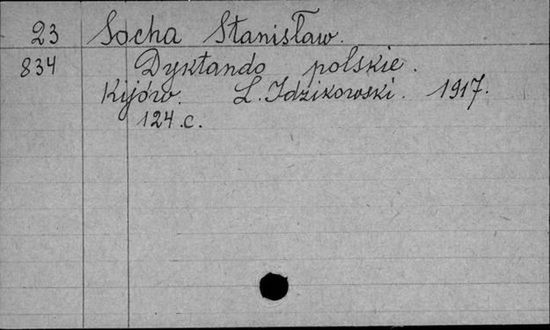 23 Socha Stanisław.
834 Dyktando polskie.
Kijów. L. Idzikowski. 1917.
124.c.